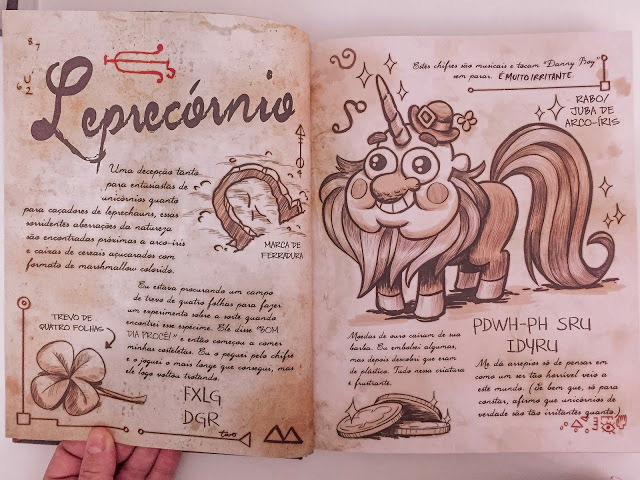 87
Leprecórnio
Uma decepção tanto
para entusiastas de
unicórnios quanto
para caçadores de leprechauns, essas
sorridentes aberrações da natureza
são encontradas próximas a arco-íris
e caixas de cereais açucarados com
formato de marshmallow colorido.
MARCA DE
FERRADURA
Eu estava procurando um campo
de trevo de quatro folhas para fazer
um experimento sobre a sorte quando
encontrei esse espécime. Ele disse "BOM
DIA PROCÊ!" e então começou a comer
minhas costeletas. Eu o peguei pelo chifre
e o joguei o mais longe que consegui, mas
ele logo voltou trotando.
TREVO DE
QUATRO FOLHAS
FXLG
DGR
Estes chifres são musicais e tocam "Danny Boy"
sem parar. É MUITO IRRITANTE.
RABO/
JUBA DE
ARCO-ÍRIS
Moedas de ouro caíram de sua
barba. Eu embolsei algumas,
mas depois descobri que eram
de plástico. Tudo nessa criatura
é frustrante.
PDWH-PH SRU
IDYRU
Me dá arrepios só de pensar em
como um ser tão horrível veio a
este mundo. (Se bem que, só para
constar, afirmo que unicórnios de
verdade são tão irritantes quanto.)